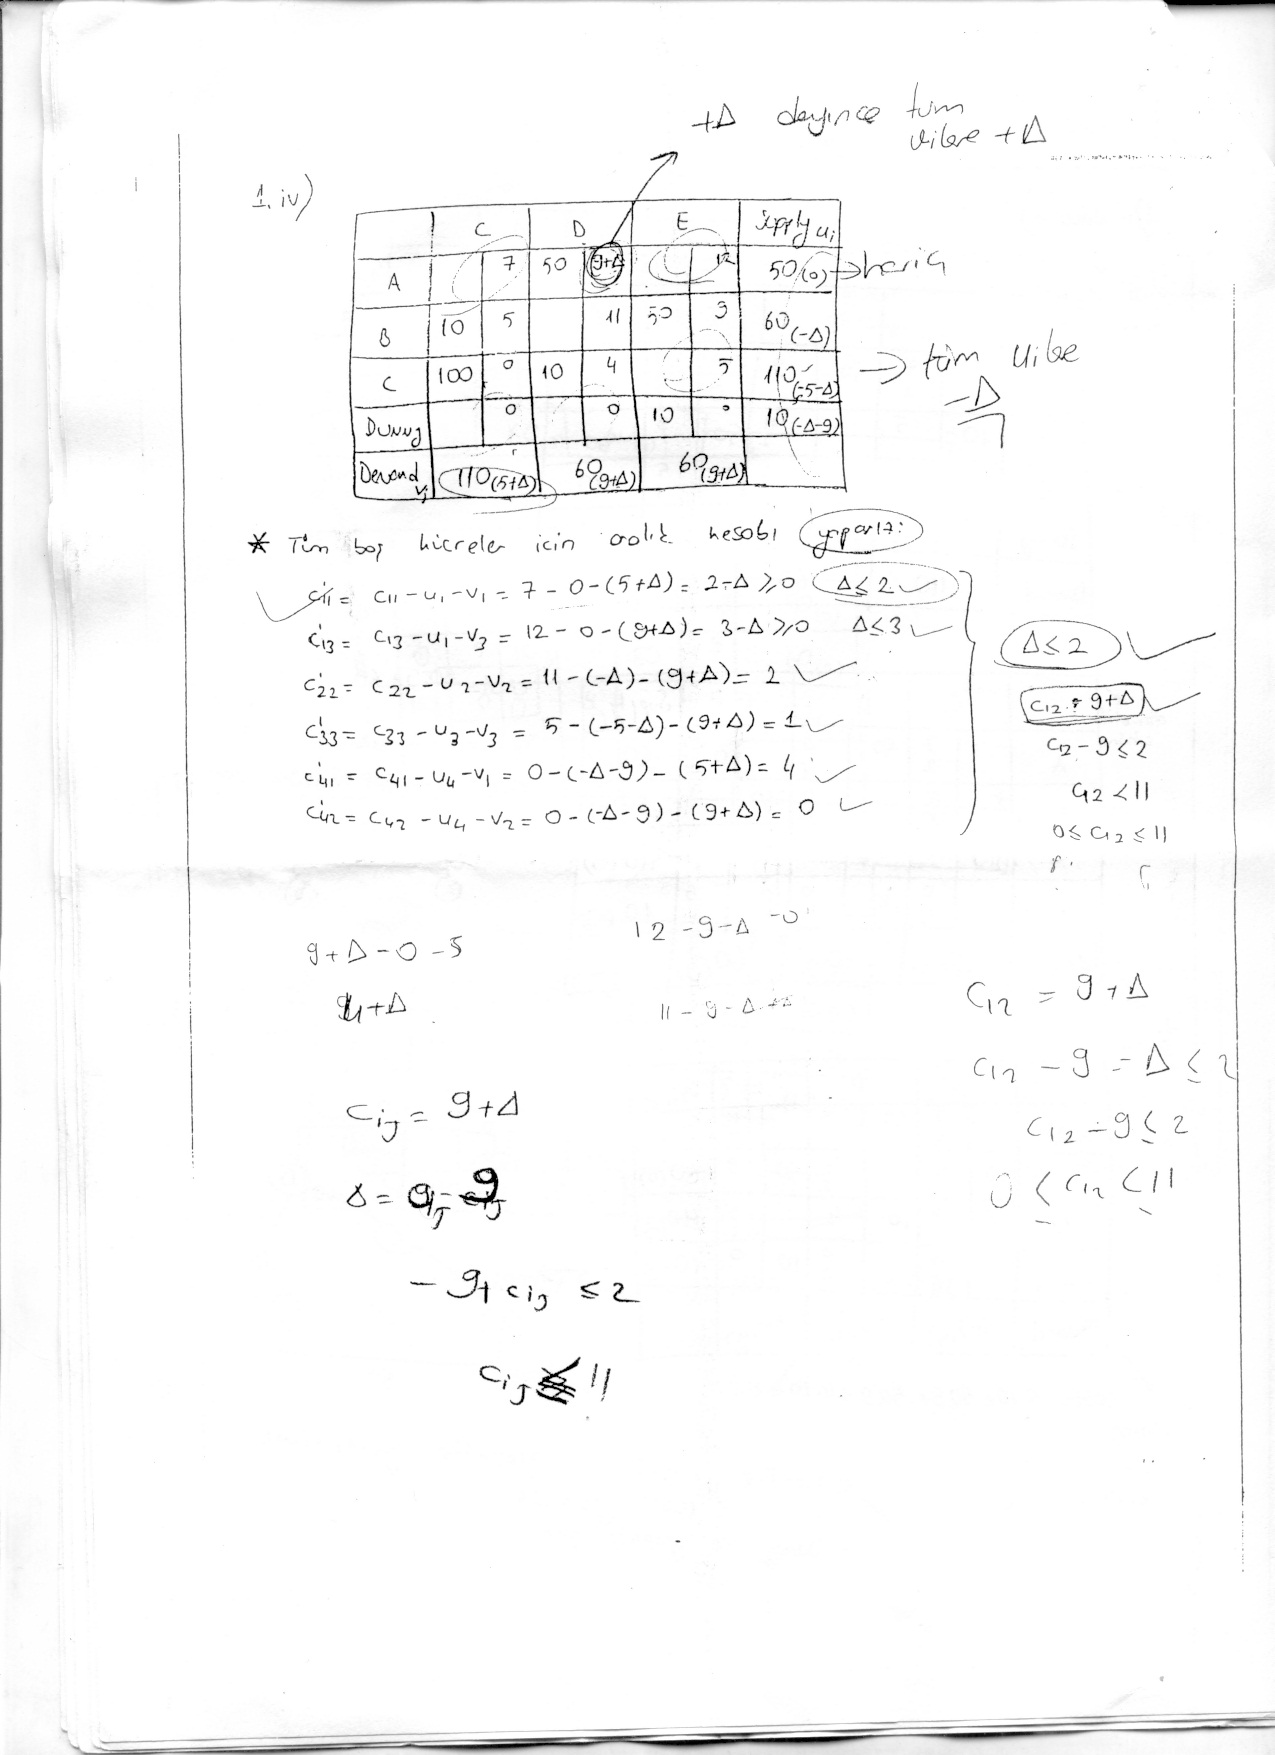 +Δ deyince tüm
vilere +Δ
1. iv)
C D E Supply ui
A 7 50 9+Δ 12 50(0) → hariç
B 10 5 11 50 9 60(-Δ)
C 100 0 10 4 5 110(-5-Δ) → tüm uilere
-Δ
Dummy 0 0 10 0 10(-Δ-9)
Demand vj 110(5+Δ) 60(9+Δ) 60(9+Δ)
* Tüm boş hücreler icin aralık hesabı yaparız:
c'11 = c11-u1-v1 = 7-0-(5+Δ) = 2-Δ ≥ 0 Δ≤2 ✓
c'13 = c13-u1-v3 = 12-0-(9+Δ) = 3-Δ ≥ 0 Δ≤3 ✓
c'22 = c22-u2-v2 = 11-(-Δ)-(9+Δ) = 2 ✓
c'33 = c33-u3-v3 = 5-(-5-Δ)-(9+Δ) = 1 ✓
c'41 = c41-u4-v1 = 0-(-Δ-9)-(5+Δ) = 4 ✓
c'42 = c42-u4-v2 = 0-(-Δ-9)-(9+Δ) = 0 ✓
Δ≤2 ✓
c12 = 9+Δ ✓
c12-9≤2
c12<11
0≤c12≤11
9+Δ-0-5
4+Δ
12-9-Δ-0
11-9-Δ+Δ
cij = 9+Δ
Δ = cij-9
-9+cij ≤2
cij ≤ 11
c12 = 9+Δ
c12-9 = Δ ≤ 2
c12-9≤2
0 ≤ c12 ≤ 11